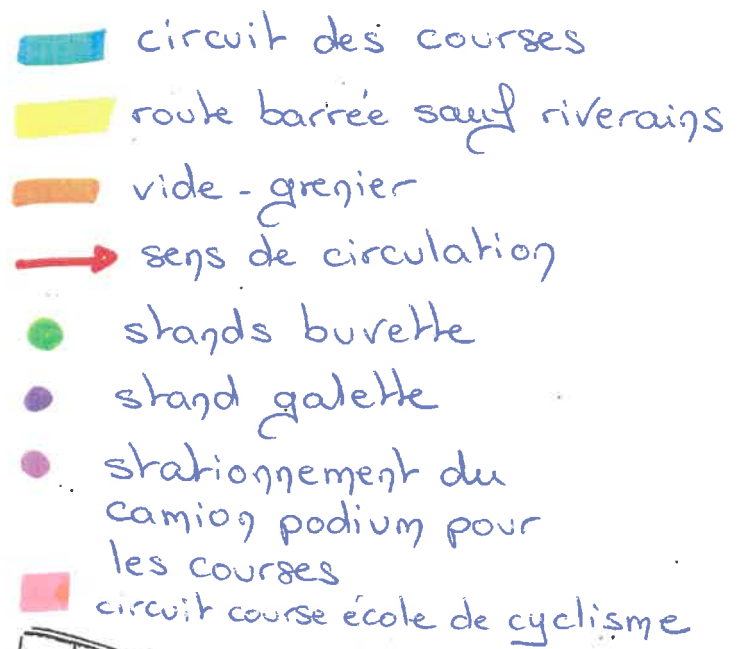 circuit des courses
route barrée sauf riverains
vide-grenier
sens de circulation
stands buvette
stand galette
stationnement du
camion podium pour
les courses
circuit course école de cyclisme